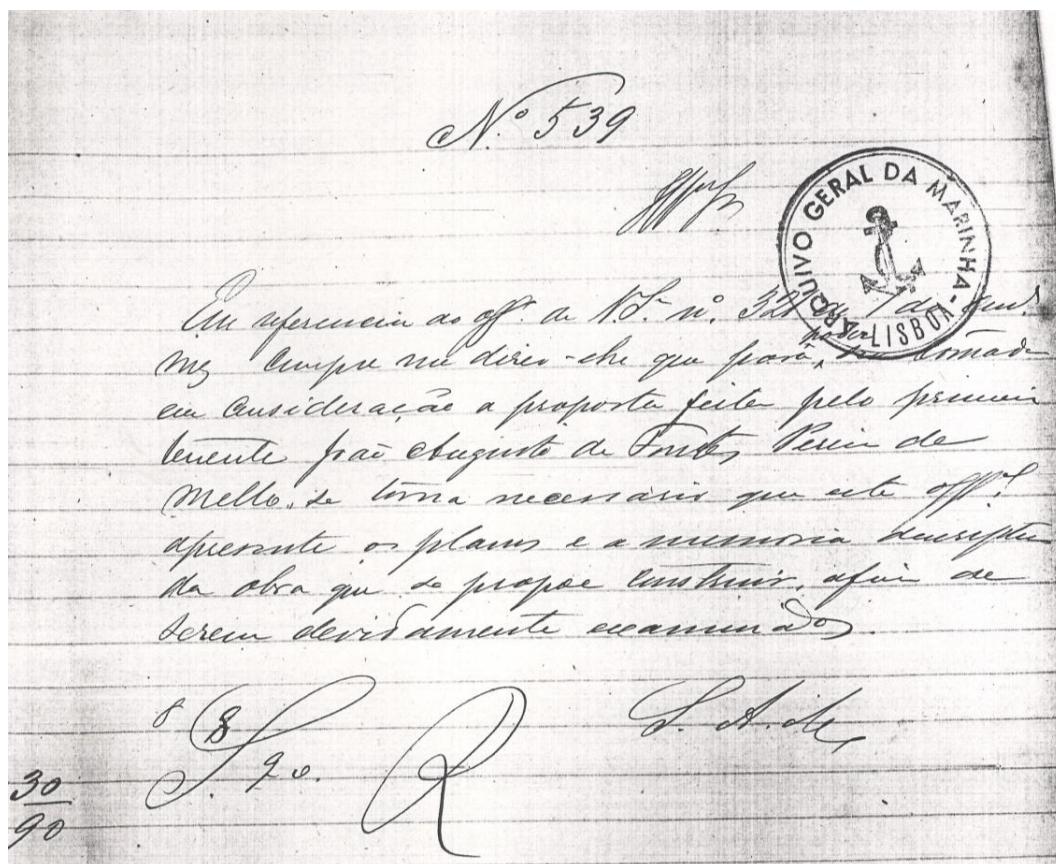 Nº 539
ARQUIVO GERAL DA MARINHA - LISBOA
Em referencia ao offº de V. Sª nº. 321 de 7 do
mez cumpre me dizer-lhe que para poder ser tomada
em consideração a proposta feita pelo primeiro
tenente João Augusto de Fontes Pereira de
Mello, se torna necessario que este offal
apresente os planos e a memoria descriptiva
da obra que se propõe construir, afim de
serem devidamente examinados.
8
90.
30
90